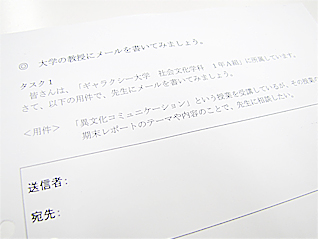 ◎ 大学の教授にメールを書いてみましょう。
タスク1
皆さんは、「ギャラクシー大学 社会文化学科 1年A組」に所属しています。
さて、以下の用件で、先生にメールを書いてみましょう。
<用件> 「異文化コミュニケーション」という授業を受講しているが、その授業の
期末レポートのテーマや内容のことで、先生に相談したい。
送信者:
宛先: